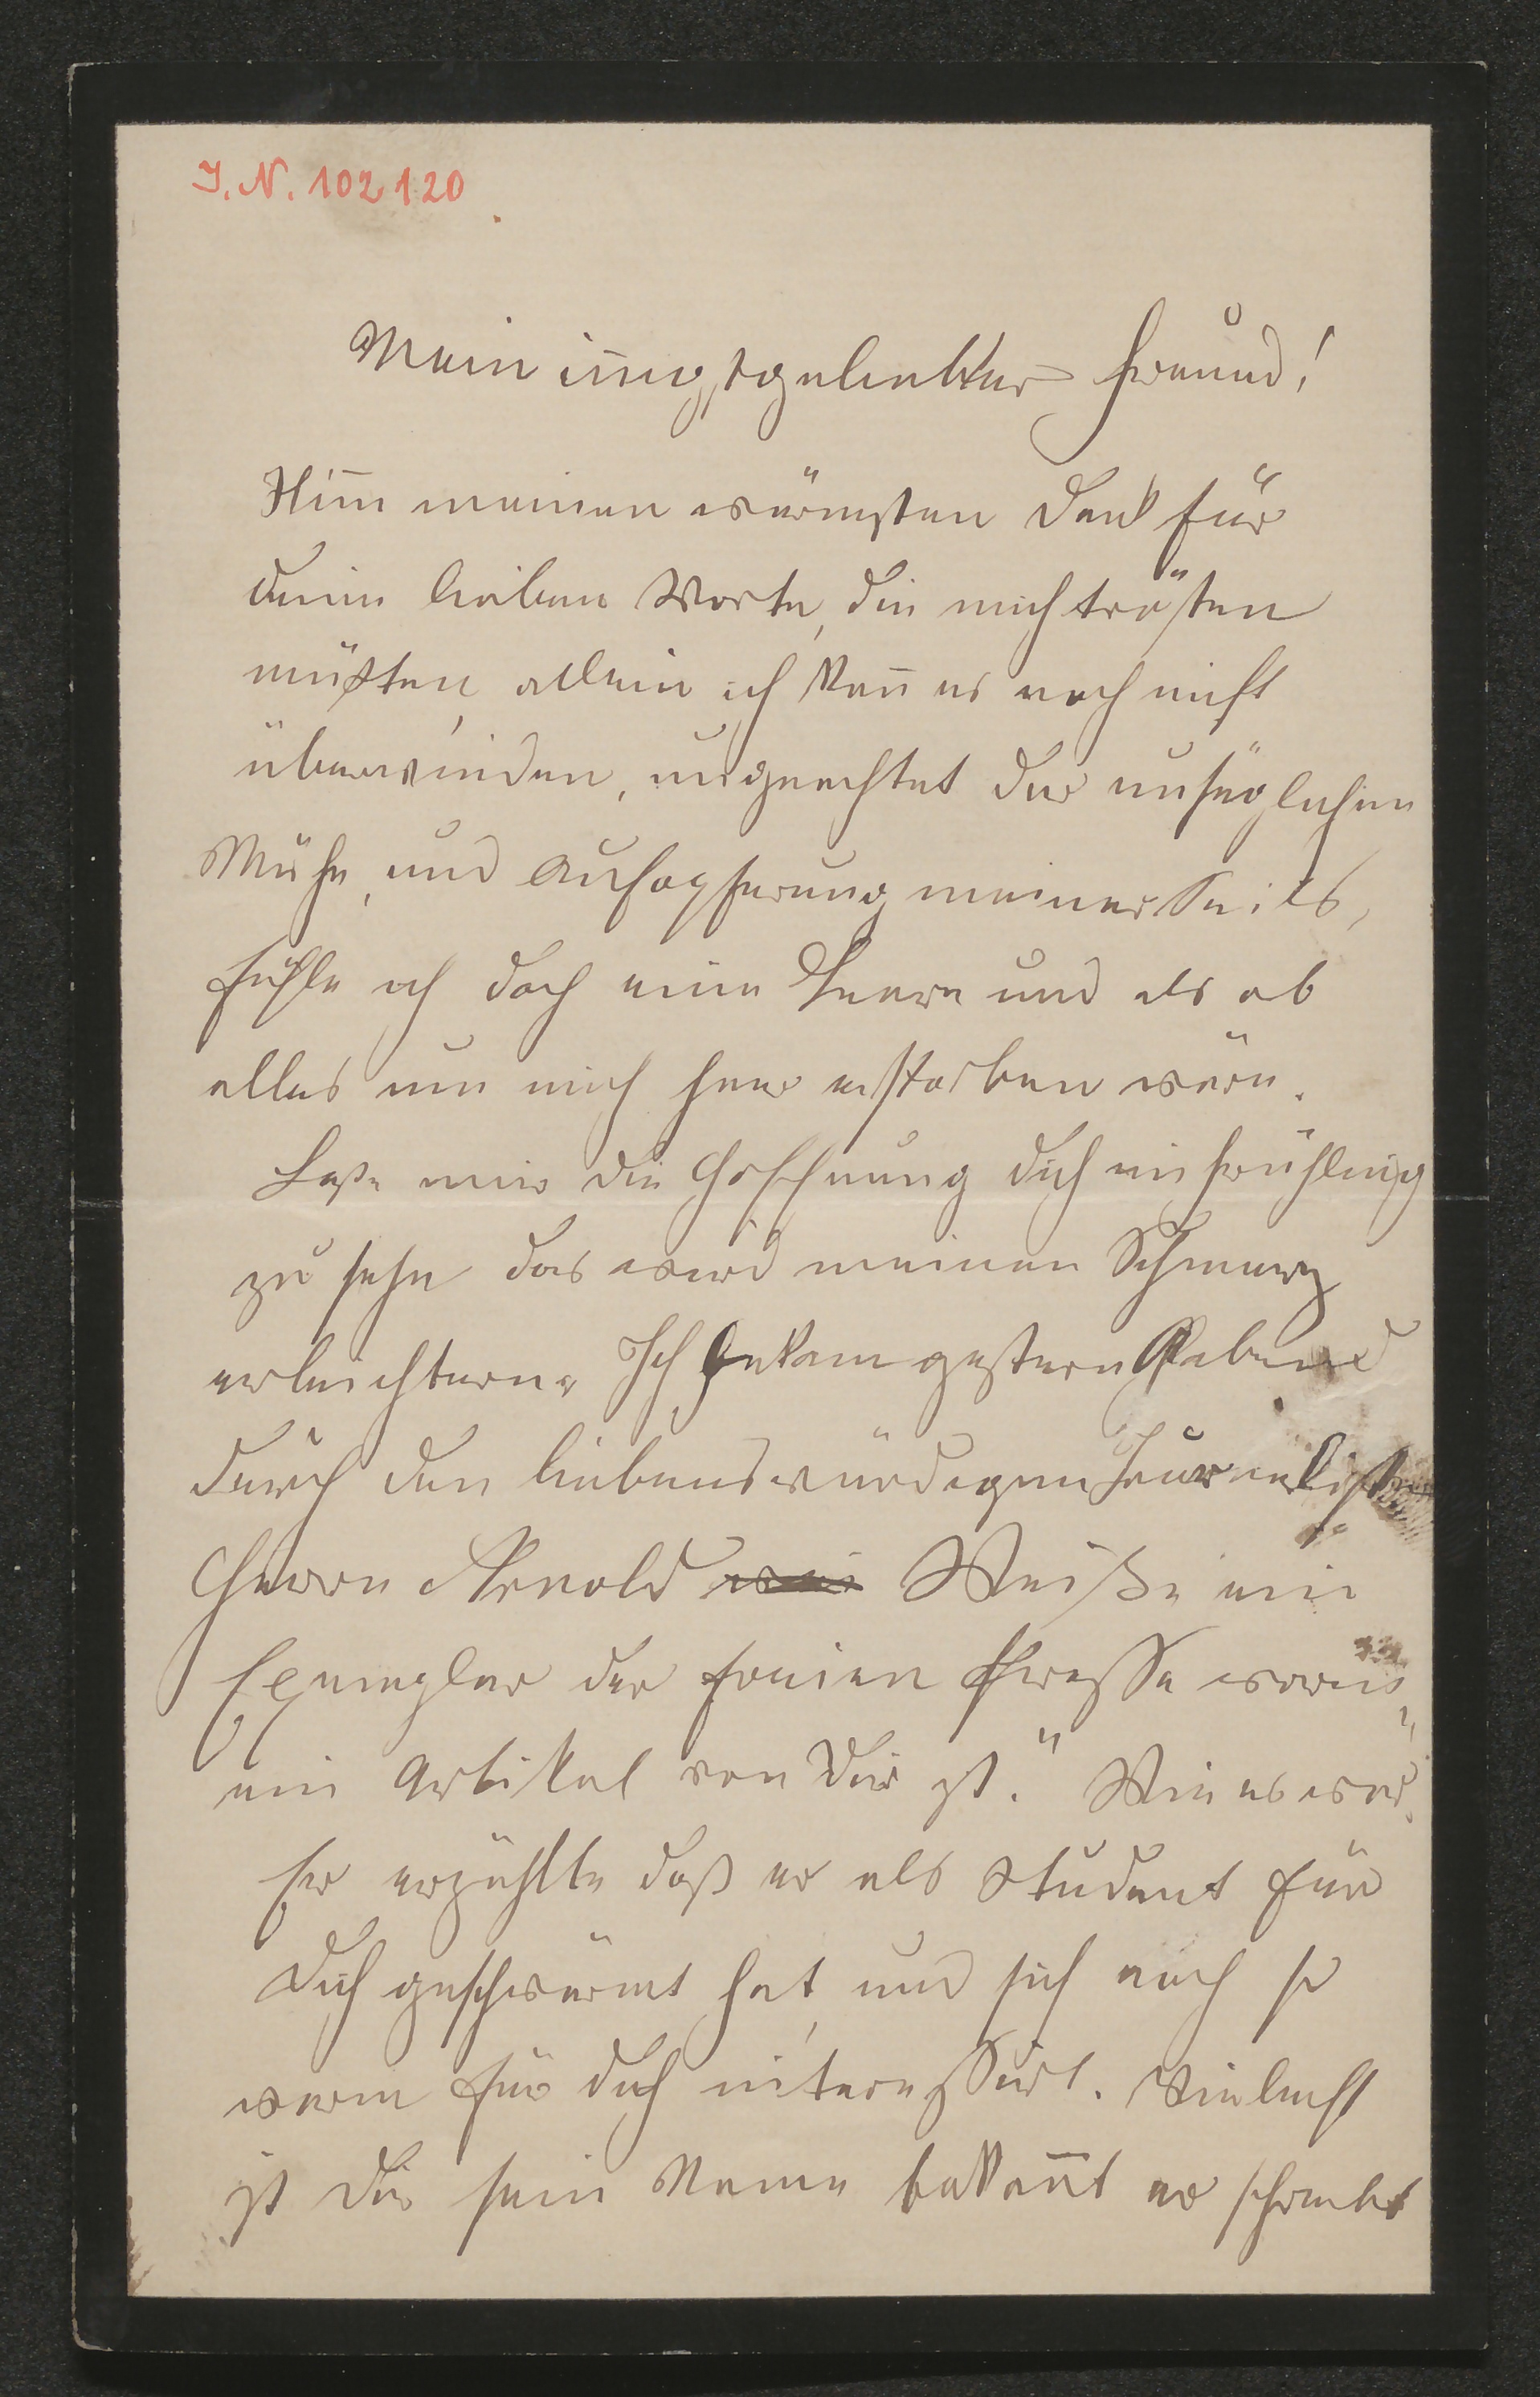 I.N. 102120
Mein iñigstgeliebter Freund!
Nim̄ meinen wärmsten Dank für
deine lieben Worte, die mich trösten
müßten, allein ich kañ es noch nicht
überwinden, ungeachtet der unsäglichen
Mühe, und Aufopferung meinerseits,
fühle ich doch eine Leere und als ob
alles um mich her erstorben wäre.
Laße mir die Hoffnung dich im Frühling
zu sehn das wird meinen Schmerz
erleichtern. Ich bekam gestern Abend
durch den liebenswürdigen Journalisten
Herrn Arnold Weiße ein
Exemplar der freien Presse worin
ein Artikel von Dir ist." Wie es war.
Er erzählte daß er als Student für
dich geschwärmt hat, und sich noch so
warm für dich interessirt. Vieleicht
ist dir sein Name bekañt er schreibt